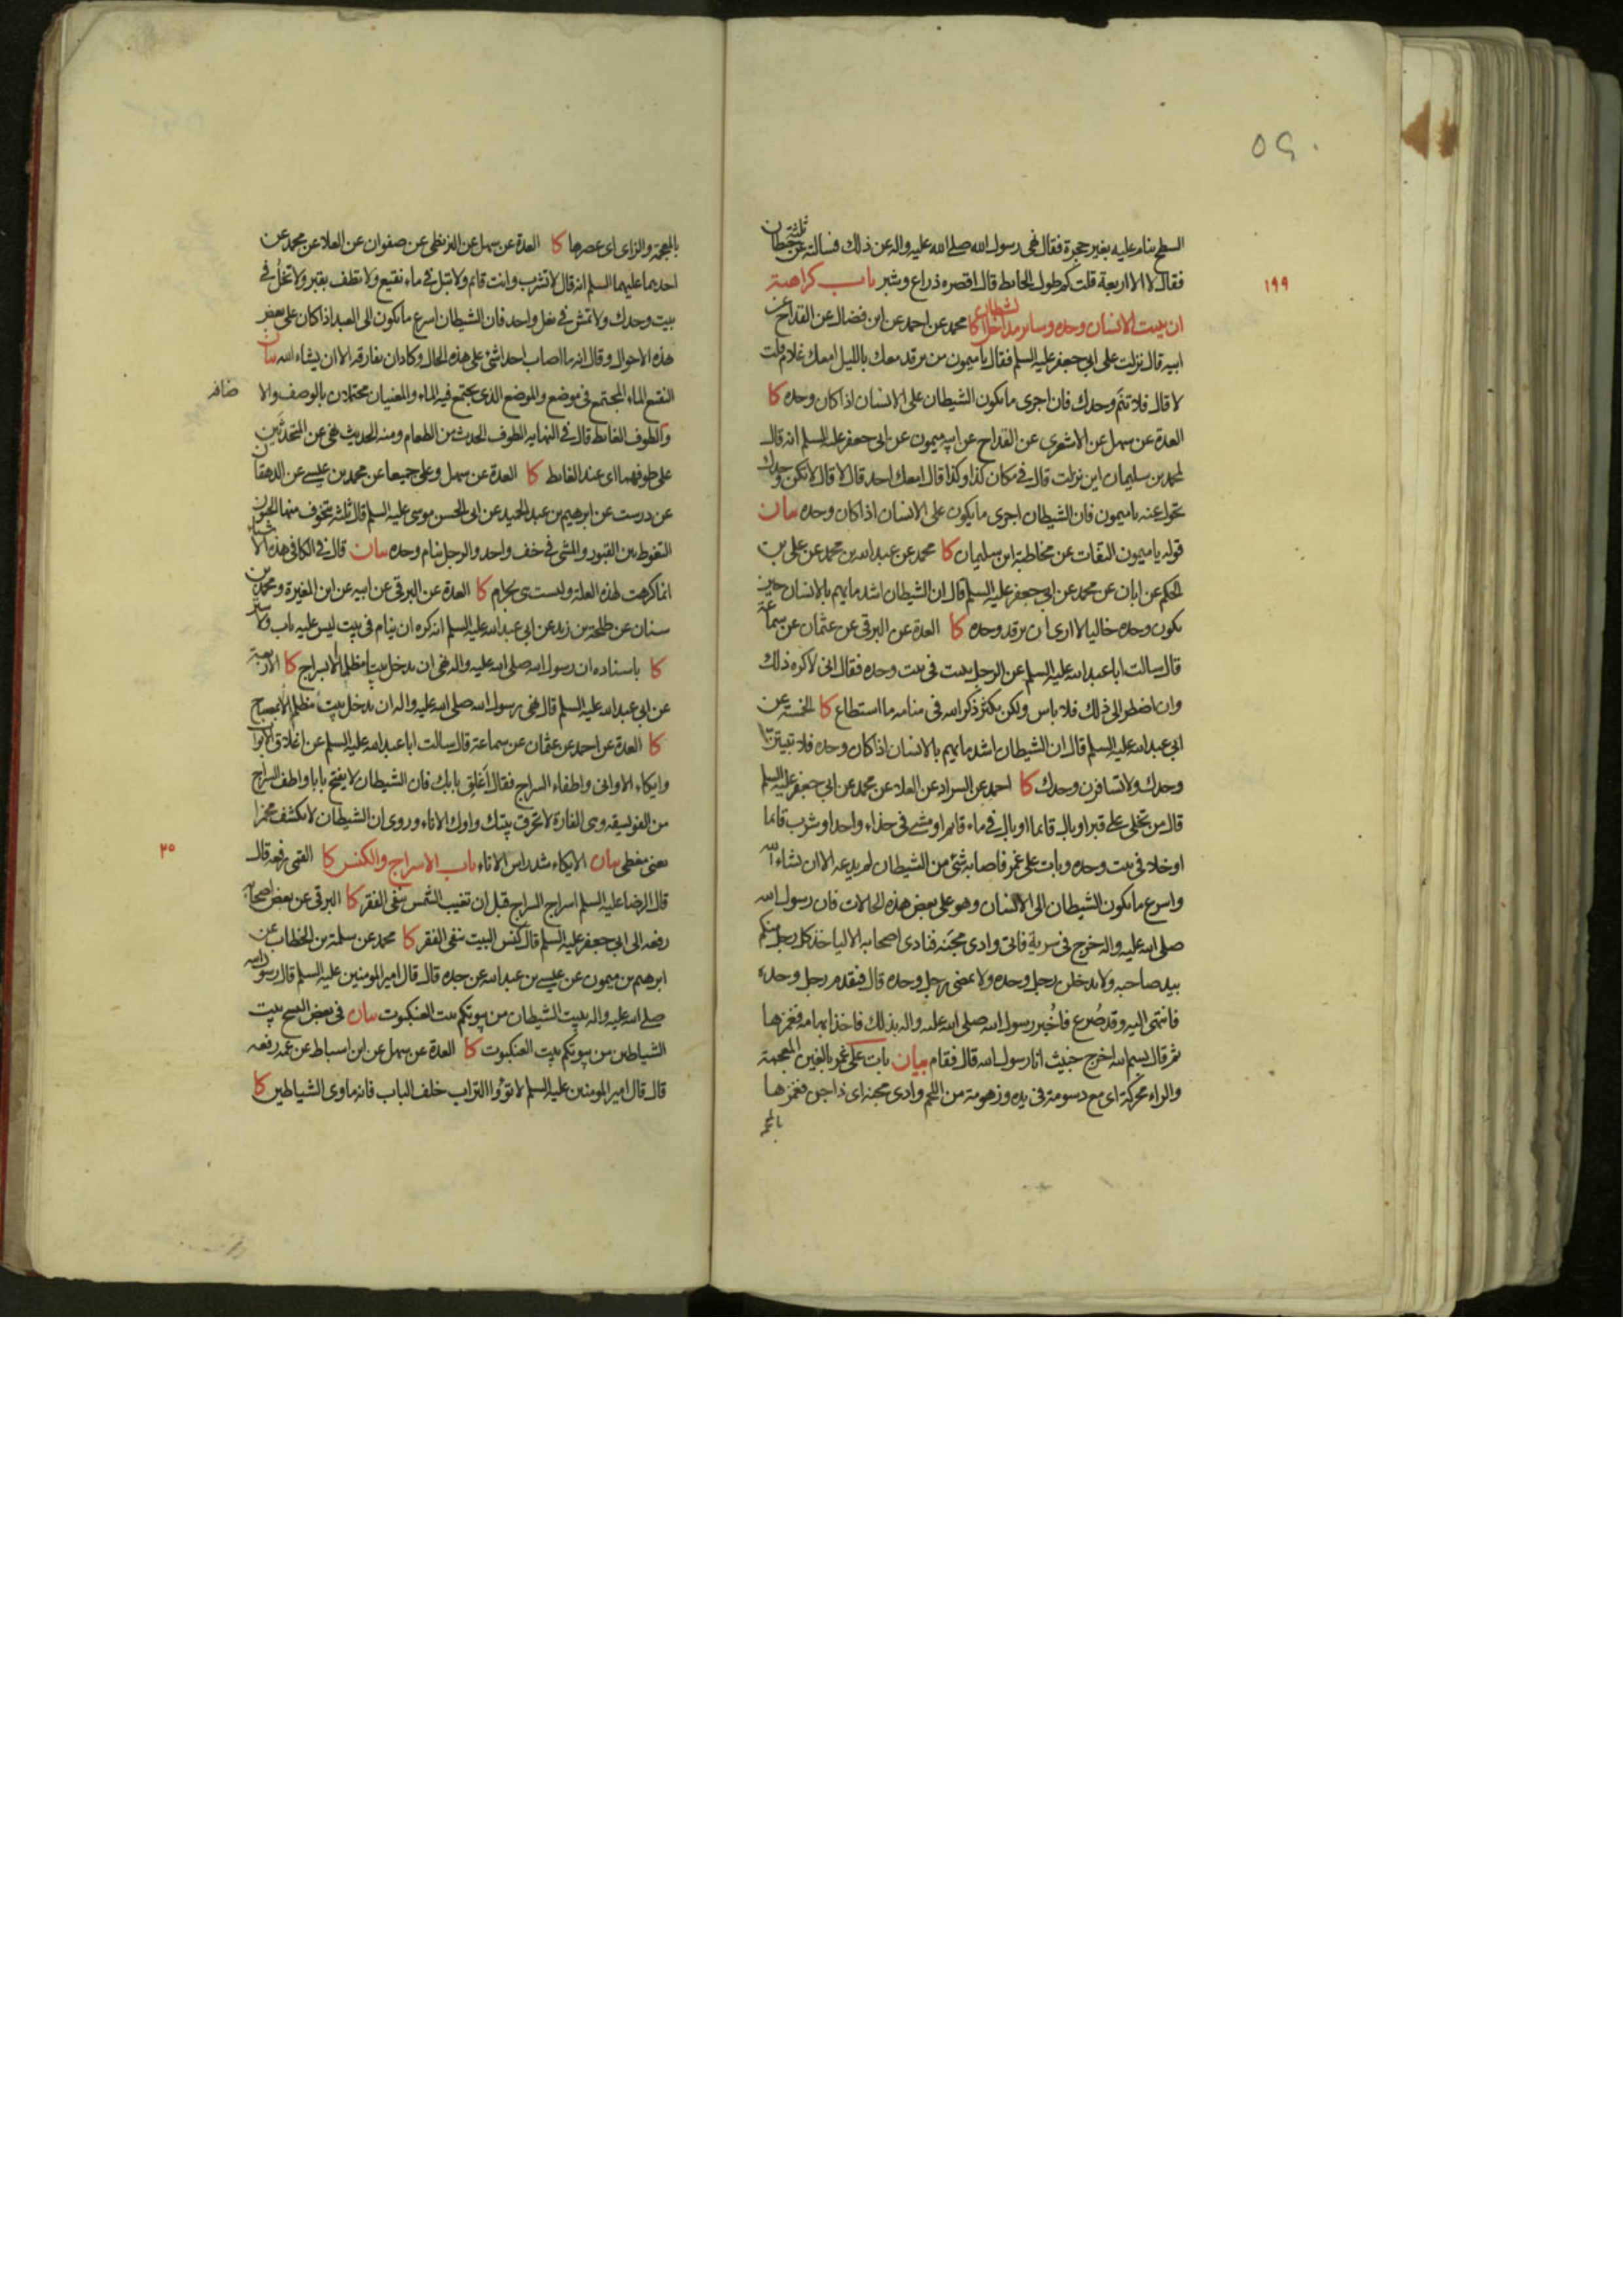 السطح ينام عليه بغير حجرة فقال نهى رسول الله صلى الله عليه واله عن ذلك فسالته عن ثلثة حيطان
فقال لا الا اربعة قلت كم طول الحايط قال اقصره ذراع وشبر باب كراهية
١٩٩
ان يبيت الانسان وحده وساير مداخل الشيطان كا محمد عن احمد عن ابن فضال عن القداح عن
ابيه قال نزلت على ابي جعفر عليه السلم فقال يا ميمون من يرقد معك بالليل امعك غلام قلت
لا قال فلا تنم وحدك فان اجرى ما يكون الشيطان على الانسان اذا كان وحده كا
العدة عن سهل عن الاشعرى عن القداح عن ابيه ميمون عن ابى جعفر عليه السلم انه قال
لمحمد بن سليمان اين نزلت قال في مكان كذا وكذا قال امعك احد قال لا قال لا تكن وحدك
تحول عنه يا ميمون فان الشيطان اجرى ما يكون على الانسان اذا كان وحده بيان
قوله يا ميمون التفات عن مخاطبة ابن سليمان كا محمد عن عبد الله بن محمد عن على بن
الحكم عن ابان عن محمد عن ابي جعفر عليه السلم قال ان الشيطان اشد ما يهم بالانسان حين
يكون وحده خاليا لا ارى ان يرقد وحده كا العدة عن البرقى عن عثمان عن سماعة
قال سالت ابا عبد الله عليه السلم عن الرجل يبيت فى بيت وحده فقال انى لاكره ذلك
وان اضطر الى ذلك فلا باس ولكن يكثر ذكر الله فى منامه ما استطاع كا الخمسة عن
ابي عبد الله عليه السلم قال ان الشيطان اشد ما يهم بالانسان اذا كان وحده فلا تبيتن
وحدك ولا تسافرن وحدك كا احمد عن السراد عن العلاء عن محمد عن ابي جعفر عليه السلم
قال من تخلى على قبر او بال قائما او بال في ماء قائم او مشى فى حذاء واحد او شرب قائما
او خلا فى بيت وحده وبات على غمر فاصابه شئ من الشيطان لم يدعه الا ان يشاء الله
واسرع ما يكون الشيطان الى الانسان وهو على بعض هذه الحالات فان رسول الله
صلى الله عليه واله خرج فى سرية فاتى وادى مجنة فنادى اصحابه الا لياخذ كل رجل منكم
بيد صاحبه ولا يدخلن رجل وحده ولا يمضى رجل وحده قال فتقدم رجل وحده
فانتهى اليه وقد صُرع فاُخبر رسول الله صلى الله عليه واله بذلك فاخذ بابهامه فغمزها
ثم قال بسم الله اخرج خبيث انا رسول الله قال فقام بيان بات على غمر بالغين المعجمة
والراء محركة اى مع دسومة فى يده وزهومة من اللحم وادى مجنة اى ذا جن فغمزها
بالمعجمة
بالمعجمة والزاى اى عصرها كا العدة عن سهل عن البزنطى عن صفوان عن العلاء عن محمد عن
احدهما عليهما السلم انه قال لا تشرب وانت قائم ولا تبل في ماء نقيع ولا تطف بقبر ولا تخلُ في
بيت وحدك ولا تمش في نعل واحد فان الشيطان اسرع ما يكون الى العبد اذا كان على بعض
هذه الاحوال وقال انه ما اصاب احدا شئ على هذه الحال وكاد ان يفارقه الا ان يشاء الله بيان
النقيع الماء المجتمع فى موضع والموضع الذى يجتمع فيه الماء والمعنيان محتملان بالوصف والا ضافه
والطوف الغائط قال في النهايه الطوف الحدث من الطعام ومنه الحديث نهى عن المتحدثين
على طوفهما اى عند الغائط كا العدة عن سهل وعلى جميعا عن محمد بن عيسى عن الدهقان
عن درست عن ابرهيم بن عبد الحميد عن ابى الحسن موسى عليه السلم قال ثلثة يتخوف منها الجنون
التغوط بين القبور والمشى فى خف واحد والرجل ينام وحده بيان قال في الكافي هذه الاشياء
انما كرهت لهذه العلة وليست هى بحرام كا العدة عن البرقى عن ابيه عن ابن المغيرة ومحمد بن
سنان عن طلحة بن زيد عن ابي عبد الله عليه السلم انه كره ان ينام فى بيت ليس عليه باب ولا ستر
كا باسناده ان رسول الله صلى الله عليه واله نهى ان يدخل بيتا مظلما الا بسراج كا الاربعة
عن ابي عبد الله عليه السلم قال نهى رسول الله صلى الله عليه واله ان يدخل بيت مظلم الا بمصباح
كا العدة عن احمد عن عثمان عن سماعة قال سالت ابا عبد الله عليه السلم عن اغلاق الابواب
وايكاء الاوانى واطفاء السراج فقال اَغلق بابك فان الشيطان لا يفتح بابا واطف السراج
من الفويسقه وهى الفارة لا تحرق بيتك واوك الاناء وروى ان الشيطان لا يكشف مخمرا
يعنى مغطى بيان الايكاء شد راس الاناء باب الاسراج والكنس كا القمى رفعه قال
٢٠٠
قال الرضا عليه السلم اسراج السراج قبل ان تغيب الشمس ينفى الفقر كا البرقى عن بعض اصحابه
رفعه الى ابي جعفر عليه السلم قال كنس البيت ينفى الفقر كا محمد عن سلمة بن الخطاب عن
ابرهيم بن ميمون عن عيسى بن عبد الله عن جده قال قال امير المومنين عليه السلم قال رسول الله
صلى الله عليه واله بيت الشيطان من بيوتكم بيت العنكبوت بيان فى بعض النسخ بيت
الشياطين من بيوتكم بيت العنكبوت كا العدة عن سهل عن ابن اسباط عن عمه رفعه
قال قال امير المومنين عليه السلم لا تؤووا التراب خلف الباب فانه ماوى الشياطين كا